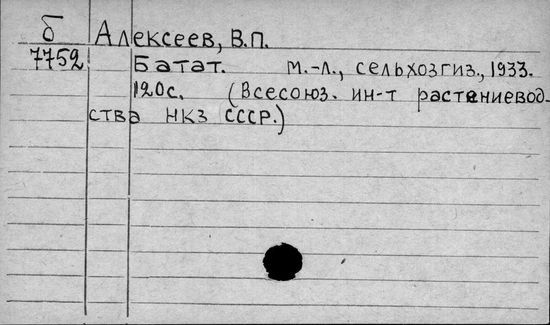 б Алексеев, В.П.
7752 Батат. М.-Л., Сельхозгиз, 1933.
120с. (Всесоюз. ин-т растениевод-
ства НКЗ СССР.)